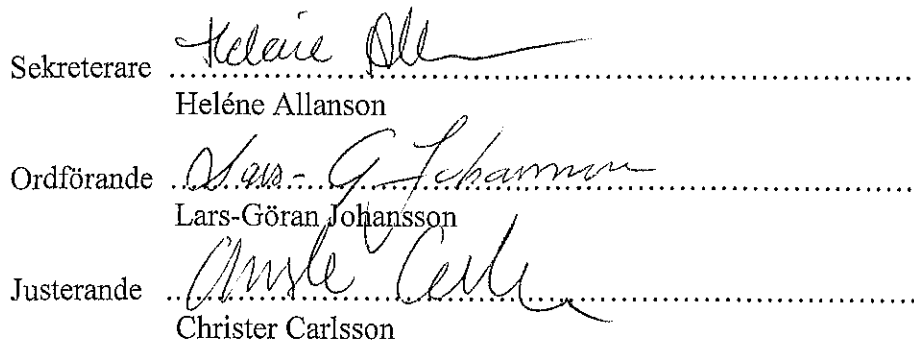 Sekreterare Heléne All
Heléne Allanson
Ordförande Lars-G Johansson
Lars-Göran Johansson
Justerande Christer Carlsson
Christer Carlsson